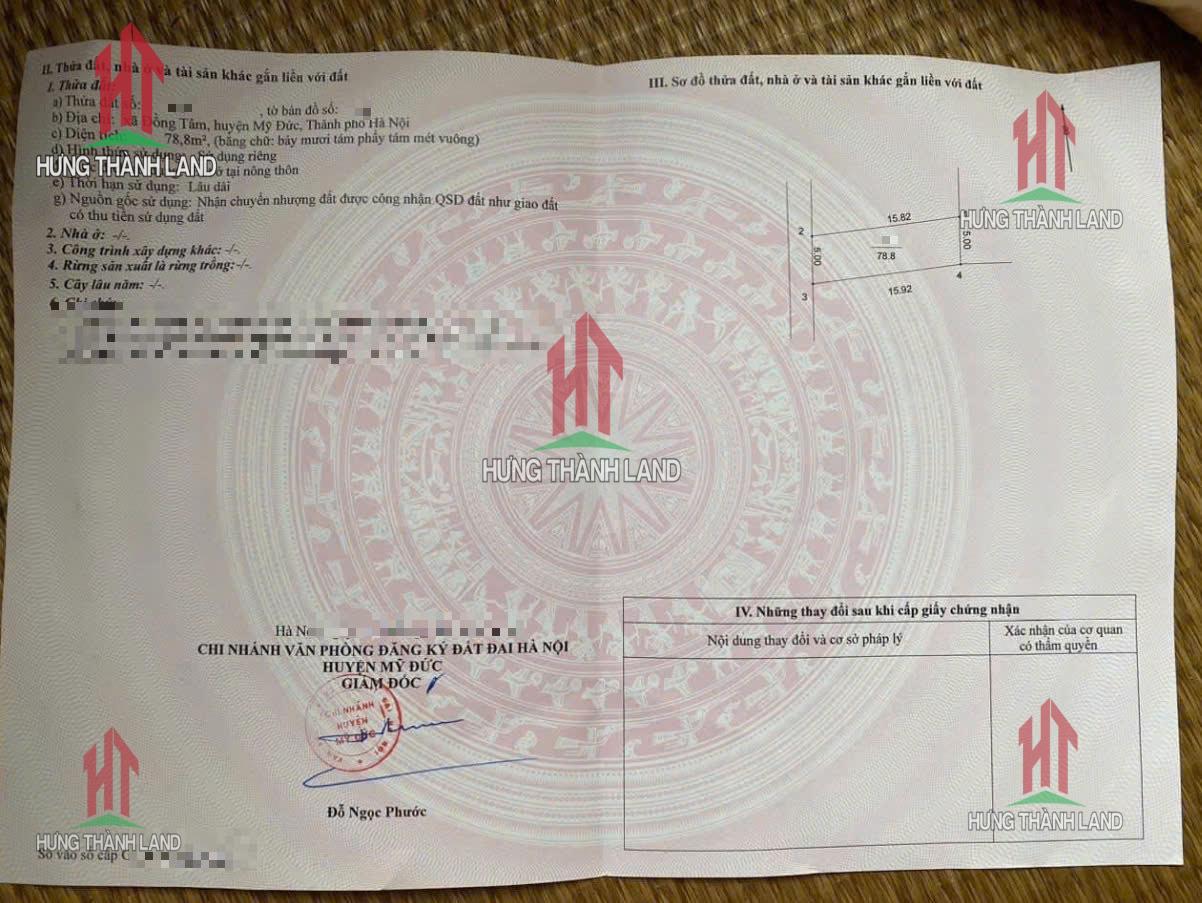 II. Thửa đất, nhà ở và tài sản khác gắn liền với đất
1. Thửa đất:
a) Thửa đất số: , tờ bản đồ số:
b) Địa chỉ: xã Đồng Tâm, huyện Mỹ Đức, Thành phố Hà Nội
c) Diện tích: 78,8m², (bằng chữ: bảy mươi tám phẩy tám mét vuông)
d) Hình thức sử dụng: Sử dụng riêng
ở tại nông thôn
e) Thời hạn sử dụng: Lâu dài
g) Nguồn gốc sử dụng: Nhận chuyển nhượng đất được công nhận QSD đất như giao đất
có thu tiền sử dụng đất
2. Nhà ở: -/-.
3. Công trình xây dựng khác: -/-.
4. Rừng sản xuất là rừng trồng:-/-.
5. Cây lâu năm: -/-.
6. Ghi chú:
Hà N
CHI NHÁNH VĂN PHÒNG ĐĂNG KÝ ĐẤT ĐAI HÀ NỘI
HUYỆN MỸ ĐỨC
GIÁM ĐỐC
CHI NHÁNH
HUYỆN
MỸ ĐỨC
Đỗ Ngọc Phước
Số vào sổ cấp C
III. Sơ đồ thửa đất, nhà ở và tài sản khác gắn liền với đất
15.82
2
5.00
78.8
5.00
4
3
15.92
IV. Những thay đổi sau khi cấp giấy chứng nhận
Nội dung thay đổi và cơ sở pháp lý
Xác nhận của cơ quan
có thẩm quyền
HT
HƯNG THÀNH LAND
HT
HƯNG THÀNH LAND
HT
HƯNG THÀNH LAND
HT
HƯNG THÀNH LAND
HT
HƯNG THÀNH LAND